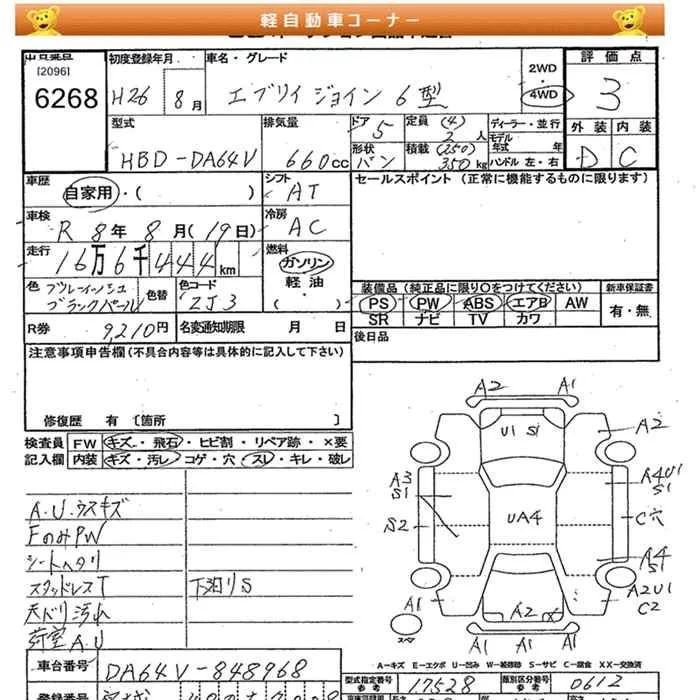 軽自動車コーナー
[2096]
6268
初度登録年月
H26 8月
車名・グレード
エブリイ ジョイン 6型
2WD
4WD
評価点
3
外装 内装
D C
型式
HBD-DA64V
排気量
660cc
ドア 5
形状 バン
定員 (4) 2人
積載 (250) 350kg
ディーラー・並行
モデル年式 年
ハンドル 左・右
車歴
自家用・( )
シフト
AT
セールスポイント (正常に機能するものに限ります)
車検
R 8年 8月(19日)
冷房
AC
走行
16万6千444km
燃料
ガソリン
軽油
( )
色 ブルーイッシュブラックパール
色替
色コード
ZJ3
装備品(純正品に限り〇をつけてください)
PS PW ABS エアB AW
SR ナビ TV カワ
新車保証書
有・無
R券 9,210円
名変通知期限 月 日
後日品
注意事項申告欄(不具合内容等は具体的に記入して下さい)
修復歴 有 〔箇所 〕
検査員記入欄
FW キズ・飛石・ヒビ割・リペア跡・×要
内装 キズ・汚レ・コゲ・穴・スレ・キレ・破レ
A.U.ウスキズ
FのみPW
シートヘタリ
スタッドレスT
下泊りS
天ドリ汚れ
荷室A.U
A2 A1
U1 S1
A2
A3
S1
A4U1
S1
S2
UA4
C穴
A4
S1
A1
A2
A2U1
C2
スペア
A1 A1 A1
A-キズ E-エクボ U-凹み W-補修跡 S-サビ C-腐食 XX-交換済
車台番号 DA64V-848968
型式指定番号 参考 17528
類別区分番号 参考 0612
登録番号